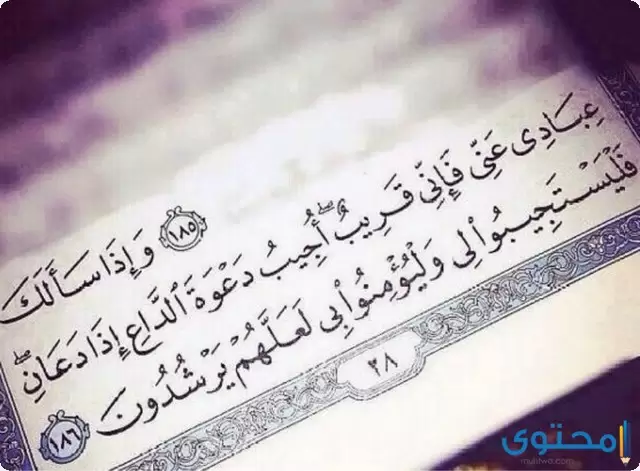 ١٨٥ وَإِذَا سَأَلَكَ
عِبَادِى عَنِّى فَإِنِّى قَرِيبٌ ۖ أُجِيبُ دَعْوَةَ ٱلدَّاعِ إِذَا دَعَانِ ۖ
فَلْيَسْتَجِيبُوا۟ لِى وَلْيُؤْمِنُوا۟ بِى لَعَلَّهُمْ يَرْشُدُونَ ١٨٦
٢٨
محتوى
muhtwa.com